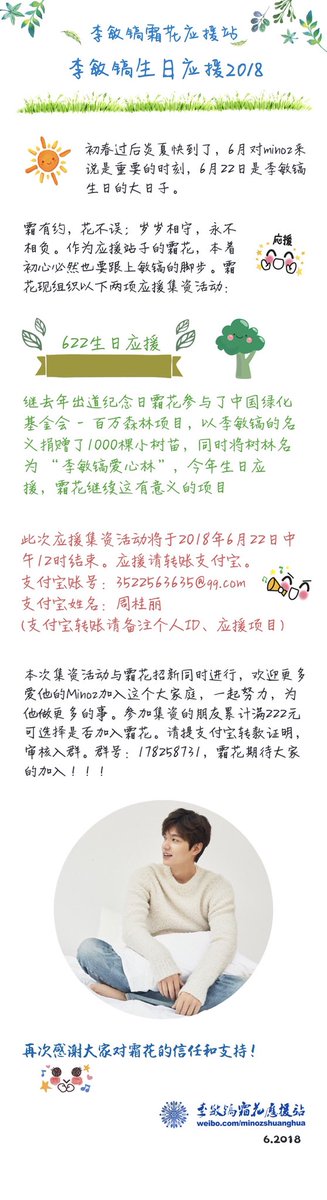 李敏镐霜花应援站
李敏镐生日应援2018
初春过后炎夏快到了，6月对minoz来
说是重要的时刻，6月22日是李敏镐
生日的大日子。
霜有约，花不误；岁岁相守，永不
相负。作为应援站子的霜花，本着
初心必然也要跟上敏镐的脚步。霜
花现组织以下两项应援集资活动：
应援
622生日应援
继去年出道纪念日霜花参与了中国绿化
基金会 - 百万森林项目，以李敏镐的名
义捐赠了1000棵小树苗，同时将树林名
为 “李敏镐爱心林”，今年生日应
援，霜花继续这有意义的项目
此次应援集资活动将于2018年6月22日中
午12时结束。应援请转账支付宝。
支付宝账号：3522563635@qq.com
支付宝姓名：周桂丽
(支付宝转账请备注个人ID、应援项目)
本次集资活动与霜花招新同时进行，欢迎更多
爱他的Minoz加入这个大家庭，一起努力，为
他做更多的事。参加集资的朋友累计满222元
可选择是否加入霜花。请提支付宝转款证明，
审核入群。群号：178258731，霜花期待大家
的加入！！！
再次感谢大家对霜花的信任和支持！
李敏镐霜花應援站
weibo.com/minozshuanghua
6.2018